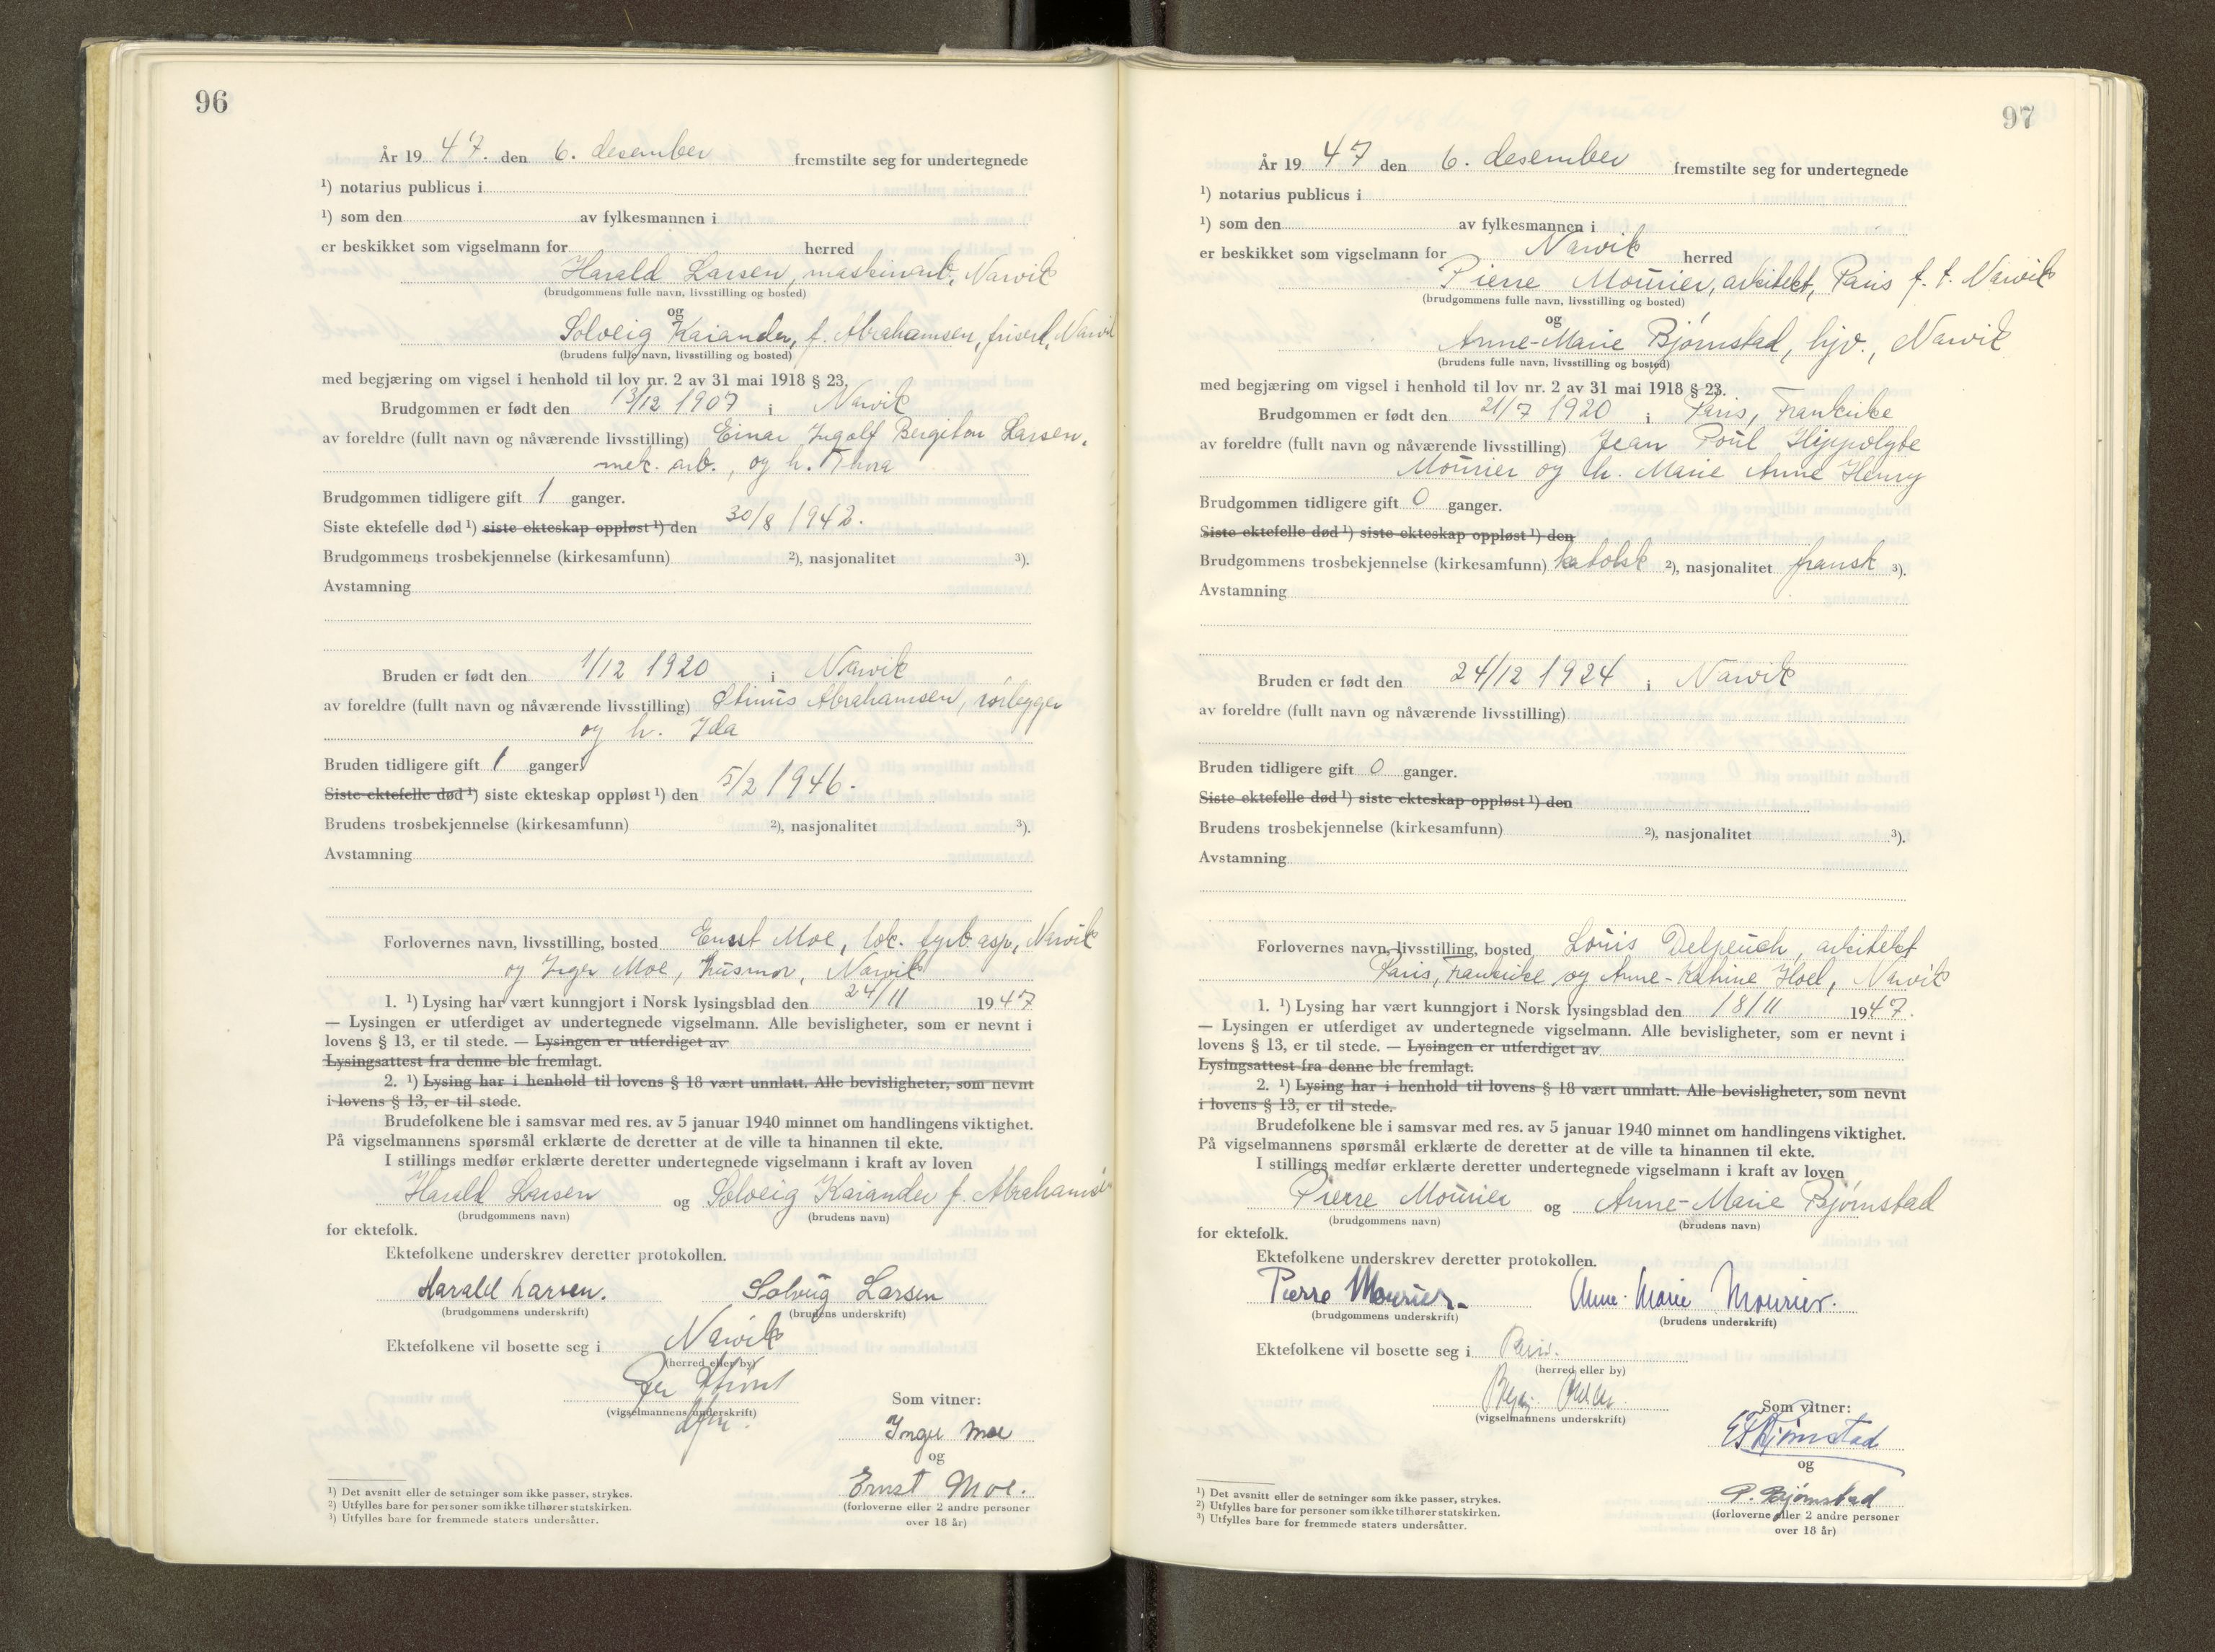 96
År 19 47. den 6. desember fremstilte seg for undertegnede
¹) notarius publicus i
¹) som den av fylkesmannen i
er beskikket som vigselmann for herred
Harald Larsen, maskinarb., Narvik
(brudgommens fulle navn, livsstilling og bosted)
og
Solveig Kaiander, f. Abrahamsen, friserd., Narvik
(brudens fulle navn, livsstilling og bosted)
med begjæring om vigsel i henhold til lov nr. 2 av 31 mai 1918 § 23.
Brudgommen er født den 13/12 1907 i Narvik
av foreldre (fullt navn og nåværende livsstilling) Einar Ingolf Bergiton Larsen,
mek. arb., og h. Thora
Brudgommen tidligere gift 1 ganger.
Siste ektefelle død ¹) siste ekteskap oppløst ¹) den 30/8 1942.
Brudgommens trosbekjennelse (kirkesamfunn) ²), nasjonalitet ³).
Avstamning
Bruden er født den 1/12 1920 i Narvik
av foreldre (fullt navn og nåværende livsstilling) Abrahamsen, rørlegger
og h. Ida
Bruden tidligere gift 1 ganger.
Siste ektefelle død ¹) siste ekteskap oppløst ¹) den 5/2 1946.
Brudens trosbekjennelse (kirkesamfunn) ²), nasjonalitet ³).
Avstamning
Forlovernes navn, livsstilling, bosted Ernst Moe, lok. fyrb. asp., Narvik
og Inger Moe, husmor, Narvik
1. ¹) Lysing har vært kunngjort i Norsk lysingsblad den 24/11 1947
— Lysingen er utferdiget av undertegnede vigselmann. Alle bevisligheter, som er nevnt i
lovens § 13, er til stede. — Lysingen er utferdiget av
Lysingsattest fra denne ble fremlagt.
2. ¹) Lysing har i henhold til lovens § 18 vært unnlatt. Alle bevisligheter, som nevnt
i lovens § 13, er til stede.
Brudefolkene ble i samsvar med res. av 5 januar 1940 minnet om handlingens viktighet.
På vigselmannens spørsmål erklærte de deretter at de ville ta hinannen til ekte.
I stillings medfør erklærte deretter undertegnede vigselmann i kraft av loven
Harald Larsen og Solveig Kaiander f. Abrahamsen
(brudgommens navn) (brudens navn)
for ektefolk.
Ektefolkene underskrev deretter protokollen.
Harald Larsen. Solveig Larsen
(brudgommens underskrift) (brudens underskrift)
Ektefolkene vil bosette seg i Narvik
(herred eller by)
Som vitner:
(vigselmannens underskrift)
Inger Moe
og
Ernst Moe.
(forloverne eller 2 andre personer
over 18 år)
¹) Det avsnitt eller de setninger som ikke passer, strykes.
²) Utfylles bare for personer som ikke tilhører statskirken.
³) Utfylles bare for fremmede staters undersåtter.
97
År 19 47 den 6. desember fremstilte seg for undertegnede
¹) notarius publicus i
¹) som den av fylkesmannen i
er beskikket som vigselmann for Narvik herred
Pierre Mourier, arkitekt, Paris f. t. Narvik
(brudgommens fulle navn, livsstilling og bosted)
og
Anne-Marie Bjørnstad, hjv., Narvik
(brudens fulle navn, livsstilling og bosted)
med begjæring om vigsel i henhold til lov nr. 2 av 31 mai 1918 § 23.
Brudgommen er født den 21/7 1920 i Paris, Frankrike
av foreldre (fullt navn og nåværende livsstilling) Jean Poul Hippolyte
Mourier og h. Marie Anne Henry
Brudgommen tidligere gift 0 ganger.
Siste ektefelle død ¹) siste ekteskap oppløst ¹) den
Brudgommens trosbekjennelse (kirkesamfunn) katolsk ²), nasjonalitet fransk ³).
Avstamning
Bruden er født den 24/12 1924 i Narvik
av foreldre (fullt navn og nåværende livsstilling)
Bruden tidligere gift 0 ganger.
Siste ektefelle død ¹) siste ekteskap oppløst ¹) den
Brudens trosbekjennelse (kirkesamfunn) ²), nasjonalitet ³).
Avstamning
Forlovernes navn, livsstilling, bosted Louis Delpeuch, arkitekt
Paris, Frankrike og Anne-Katrine Hoel, Narvik
1. ¹) Lysing har vært kunngjort i Norsk lysingsblad den 18/11 1947.
— Lysingen er utferdiget av undertegnede vigselmann. Alle bevisligheter, som er nevnt i
lovens § 13, er til stede. — Lysingen er utferdiget av
Lysingsattest fra denne ble fremlagt.
2. ¹) Lysing har i henhold til lovens § 18 vært unnlatt. Alle bevisligheter, som nevnt
i lovens § 13, er til stede.
Brudefolkene ble i samsvar med res. av 5 januar 1940 minnet om handlingens viktighet.
På vigselmannens spørsmål erklærte de deretter at de ville ta hinannen til ekte.
I stillings medfør erklærte deretter undertegnede vigselmann i kraft av loven
Pierre Mourier og Anne-Marie Bjørnstad
(brudgommens navn) (brudens navn)
for ektefolk.
Ektefolkene underskrev deretter protokollen.
Pierre Mourier. Anne-Marie Mourier.
(brudgommens underskrift) (brudens underskrift)
Ektefolkene vil bosette seg i Paris.
(herred eller by)
Som vitner:
(vigselmannens underskrift)
Bjørnstad
og
P. Bjørnstad
(forloverne eller 2 andre personer
over 18 år)
¹) Det avsnitt eller de setninger som ikke passer, strykes.
²) Utfylles bare for personer som ikke tilhører statskirken.
³) Utfylles bare for fremmede staters undersåtter.